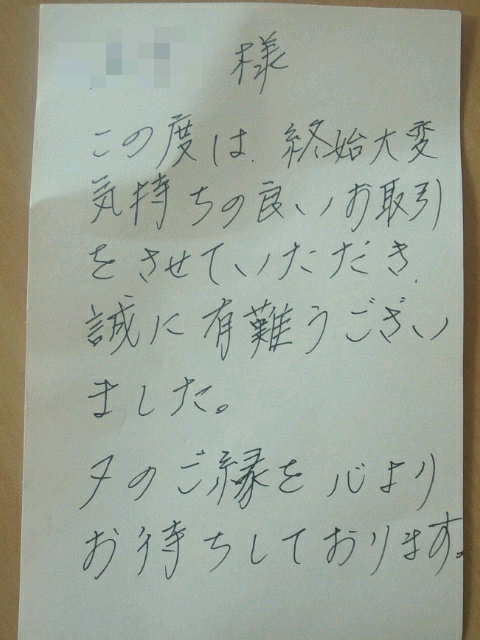 様
この度は、終始大変
気持ちの良いお取引
をさせていただき、
誠に有難うござい
ました。
夕のご縁を心より
お待ちしております。